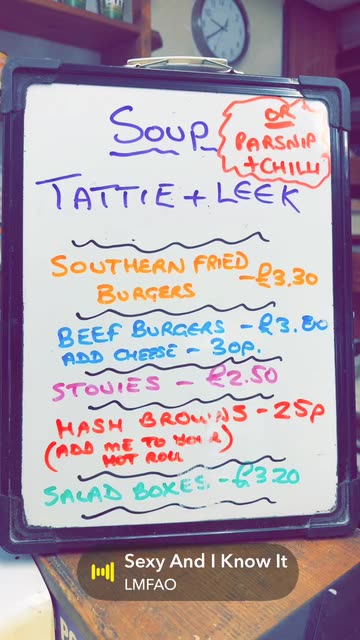 SOUP
OR
PARSNIP
+ CHILLI
TATTIE + LEEK
SOUTHERN FRIED
BURGERS - £3.30
BEEF BURGERS - £3.80
ADD CHEESE - 30p.
STOVIES - £2.50
HASH BROWNS - 25p
(ADD ME TO YOUR
HOT ROLL)
SALAD BOXES - £3.20
Sexy And I Know It
LMFAO